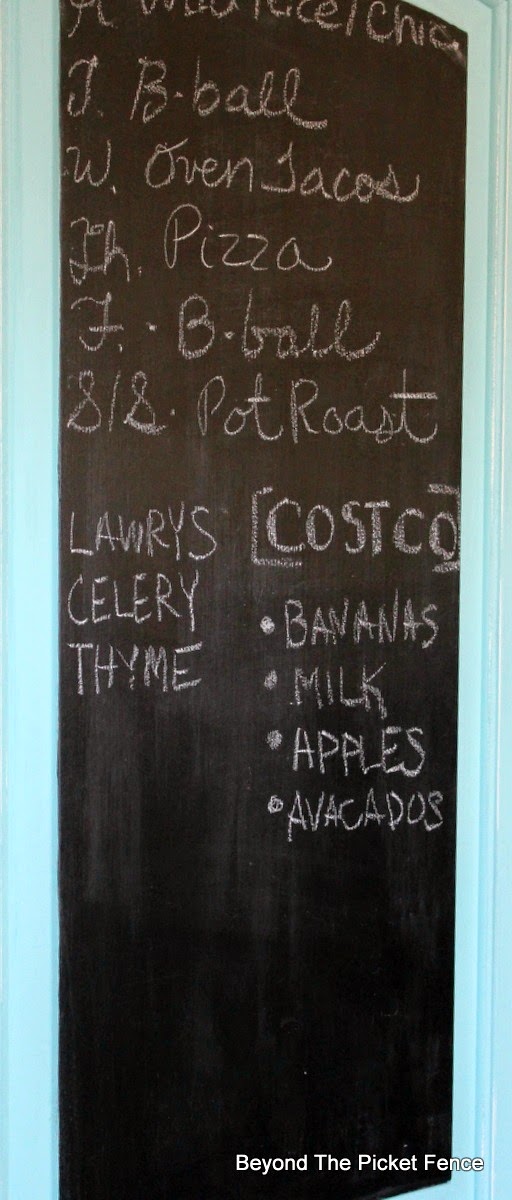 Wild Rice/Chic
T. B-ball
W. Oven Tacos
Th. Pizza
F. B-ball
S/S. Pot Roast
LAWRYS
CELERY
THYME
[COSTCO]
• BANANAS
• MILK
• APPLES
• AVACADOS
Beyond The Picket Fence